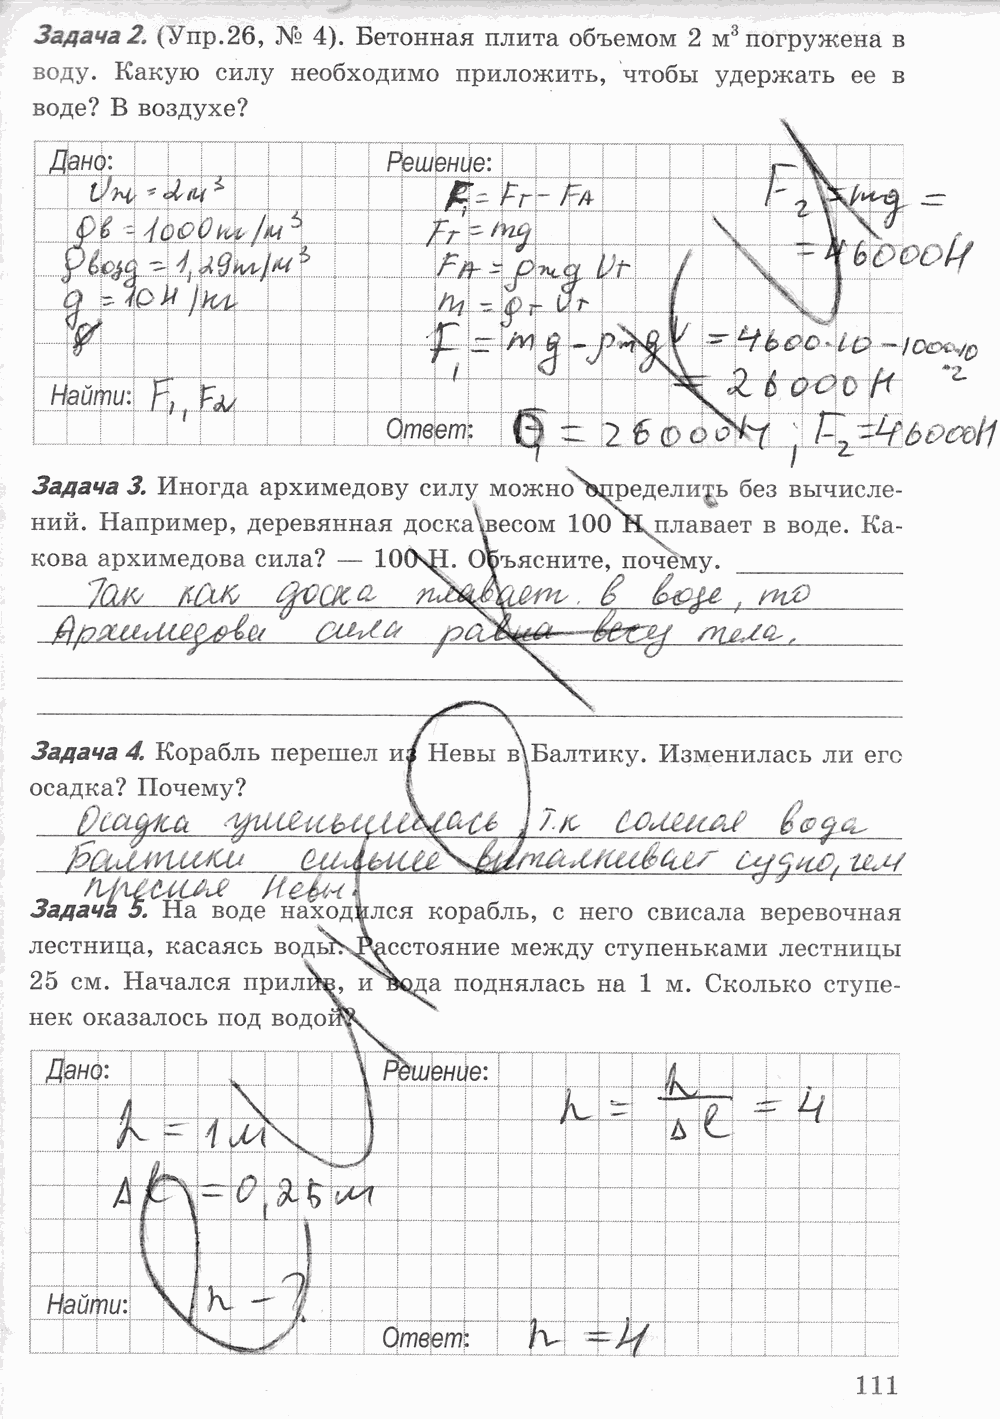 Задача 2. (Упр.26, № 4). Бетонная плита объемом 2 м³ погружена в
воду. Какую силу необходимо приложить, чтобы удержать ее в
воде? В воздухе?
Дано:
Vт = 2м³
ρв = 1000кг/м³
ρвозд = 1,29кг/м³
g = 10Н/кг
Найти: F₁, F₂
Решение:
F₁ = Fт - FА
Fт = mg
FА = ρжg Vт
m = ρт Vт
F₁ = mg - ρжgV = 4600·10 - 1000·10
·2
= 26000Н
F₂ = mg =
= 46000Н
Ответ: F₁ = 26000Н; F₂=46000Н
Задача 3. Иногда архимедову силу можно определить без вычисле-
ний. Например, деревянная доска весом 100 Н плавает в воде. Ка-
кова архимедова сила? — 100 Н. Объясните, почему.
Так как доска плавает в воде, то
Архимедова сила равна весу тела.
Задача 4. Корабль перешел из Невы в Балтику. Изменилась ли его
осадка? Почему?
Осадка уменьшилась, т.к соленая вода
Балтики сильнее выталкивает судно, чем
пресная Невы.
Задача 5. На воде находился корабль, с него свисала веревочная
лестница, касаясь воды. Расстояние между ступеньками лестницы
25 см. Начался прилив, и вода поднялась на 1 м. Сколько ступе-
нек оказалось под водой?
Дано:
h = 1м
Δl = 0,25м
Найти: n - ?
Решение:
n = h/Δl = 4
Ответ: n = 4
111